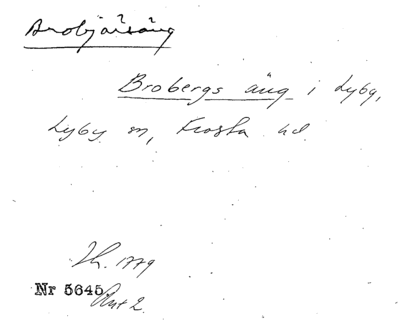 Brobjärsäng
Brobergs äng i Lyby,
Lyby sn, Frosta hd.
Th. 1779
Nr 5645.
Akt 2.